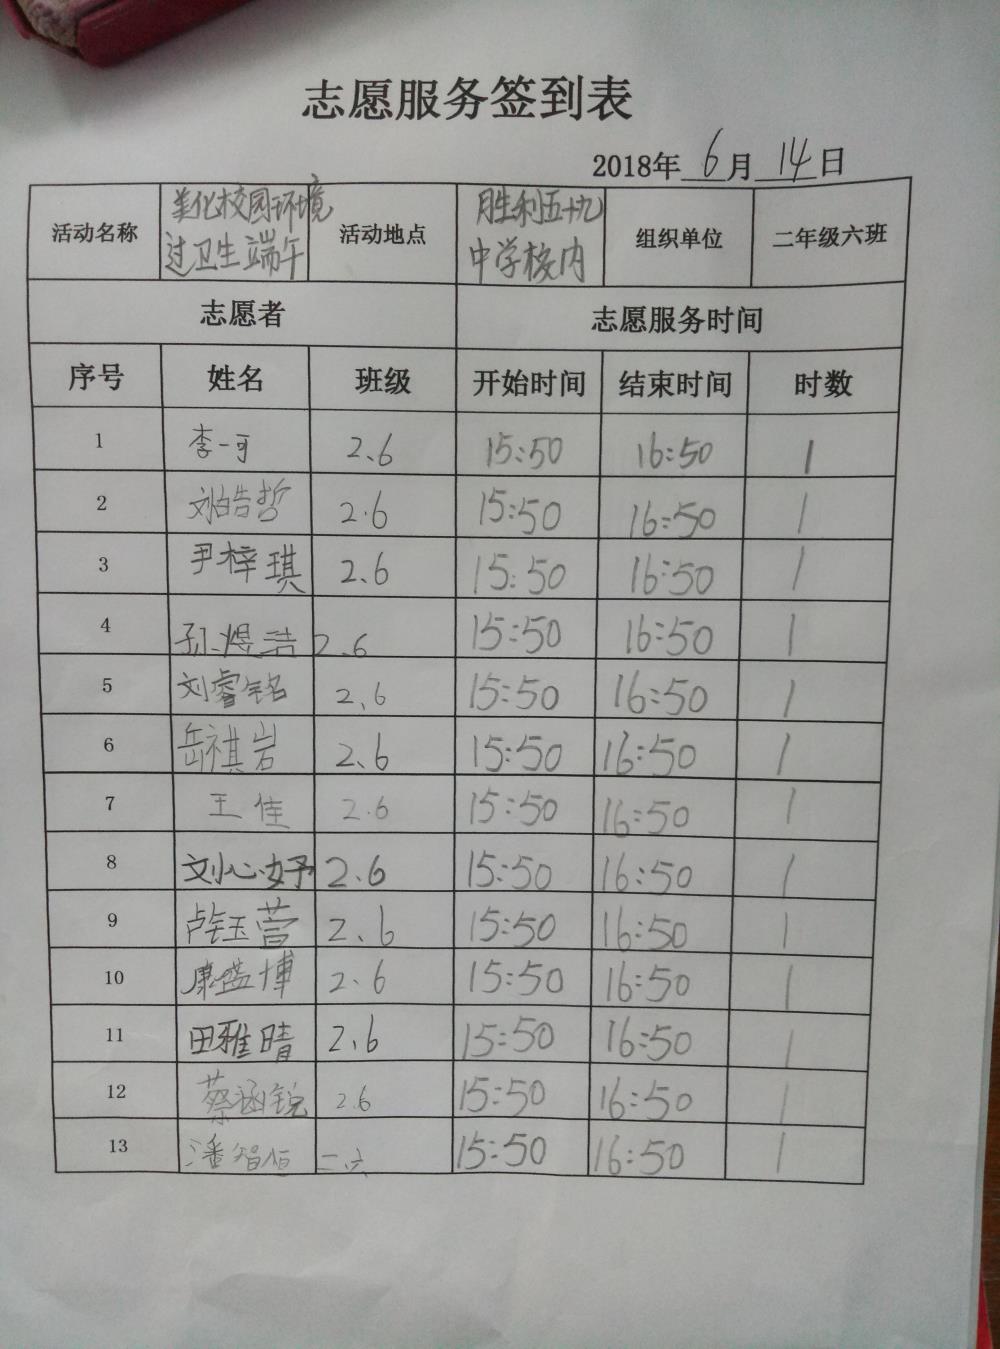 志愿服务签到表
2018年 6 月 14 日
活动名称 美化校园环境 过卫生端午 活动地点 胜利五十九 中学校内 组织单位 二年级六班
志愿者 志愿服务时间
序号 姓名 班级 开始时间 结束时间 时数
1 李一可 2、6 15:50 16:50 1
2 刘皓哲 2.6 15:50 16:50 1
3 尹梓琪 2、6 15:50 16:50 1
4 孙煜浩 2、6 15:50 16:50 1
5 刘睿铭 2、6 15:50 16:50 1
6 岳祺岩 2、6 15:50 16:50 1
7 王佳 2.6 15:50 16:50 1
8 刘心妤 2.6 15:50 16:50 1
9 卢钰萱 2、6 15:50 16:50 1
10 康益博 2、6 15:50 16:50 1
11 田雅晴 2、6 15:50 16:50 1
12 蔡涵锐 2.6 15:50 16:50 1
13 潘智恒 二、六 15:50 16:50 1